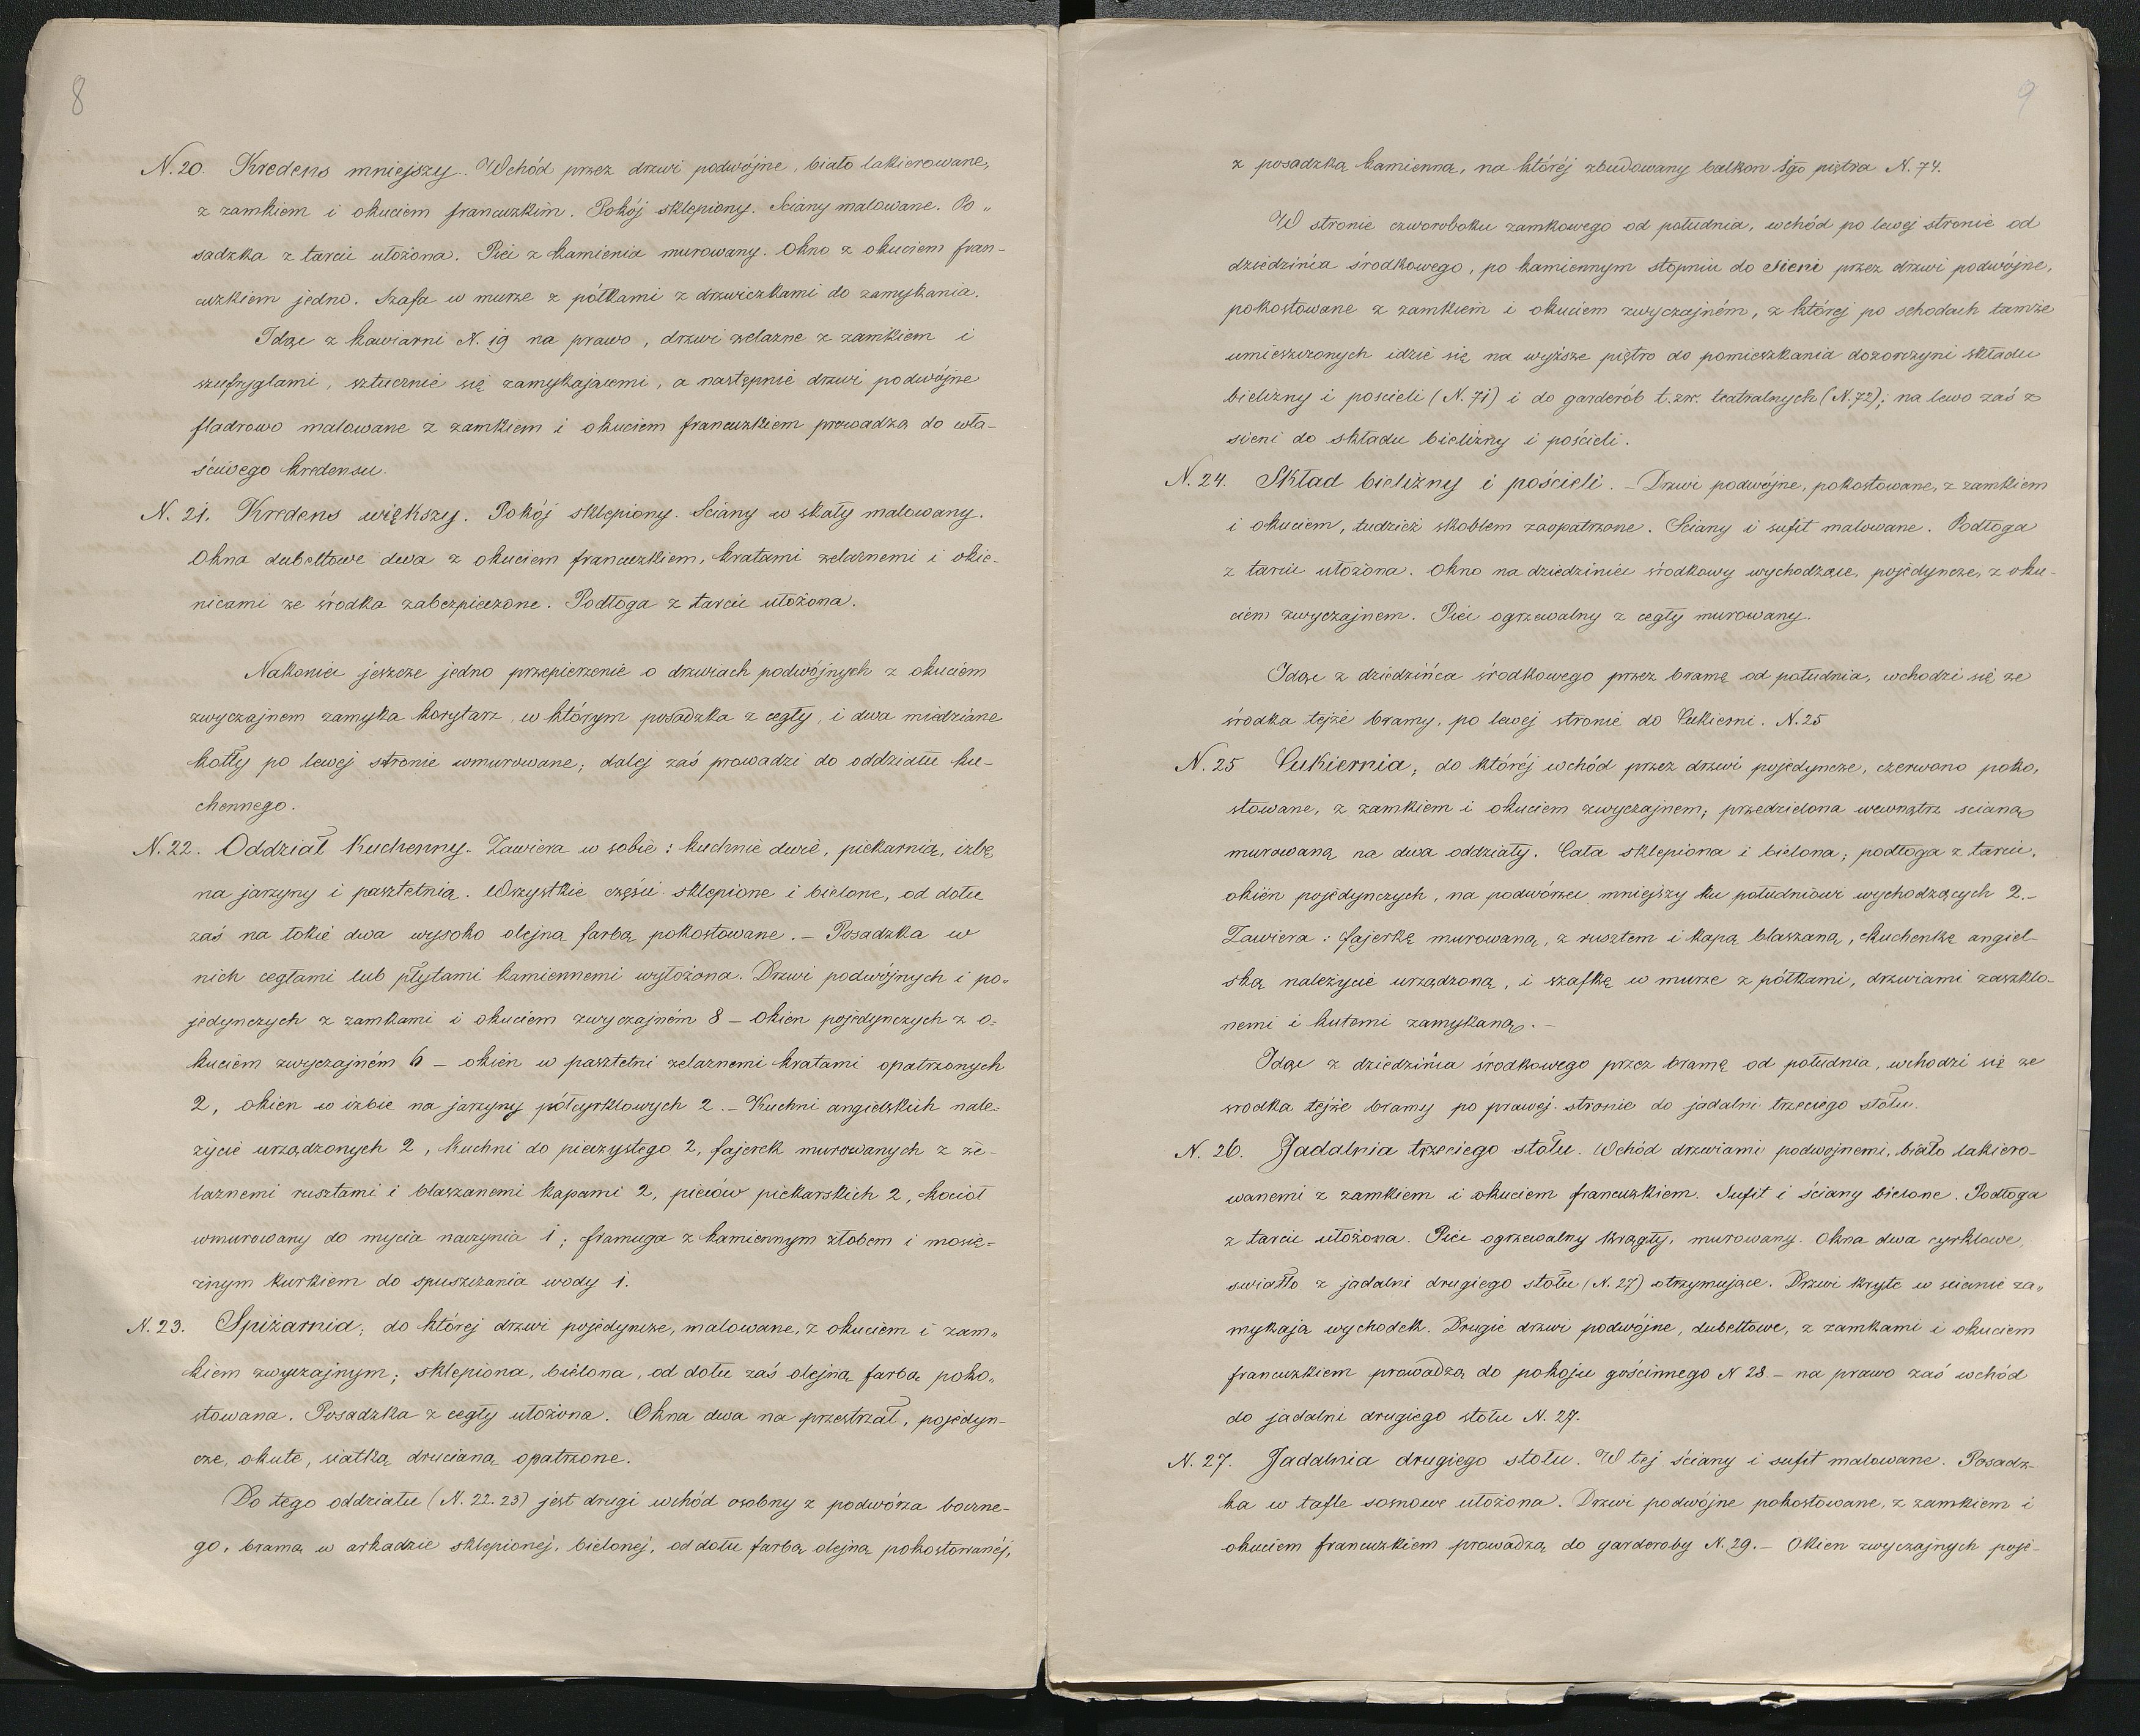 8
N. 20. Kredens mniejszy. Wchód przez drzwi podwójne, biało lakierowane,
z zamkiem i okuciem francuzkim. Pokój sklepiony. Ściany malowane. Po„
sadzka z tarcic ułożona. Piec z kamienia murowany. Okno z okuciem fran-
cuzkiem jedno. Szafa w murze z półkami z drzwiczkami do zamykania.
Idąc z kawiarni N. 19 na prawo, drzwi żelazne z zamkiem i
szufryglami, sztucznie się zamykającemi, a następnie drzwi podwójne
fladrowo malowane z zamkiem i okuciem francuzkiem prowadzą do wła-
ściwego kredensu.
N. 21. Kredens większy. Pokój sklepiony. Ściany w skały malowany.
Okna dubeltowe dwa z okuciem francuzkiem, kratami żelaznemi i okie-
nicami ze środka zabezpieczone. Podłoga z tarcic ułożona.
Nakoniec jeszcze jedno przepierzenie o drzwiach podwójnych z okuciem
zwyczajnem zamyka korytarz, w którym posadzka z cegły, i dwa miedziane
kotły po lewej stronie wmurowane; dalej zaś prowadzi do oddziału ku-
chennego.
N. 22. Oddział Kuchenny. Zawiera w sobie: kuchnie dwie, piekarnią, izbę
na jarzyny i pasztetnią. Wszystkie części sklepione i bielone, od dołu
zaś na łokie dwa wysoko olejną farbą pokostowane. – Posadzka w
nich cegłami lub płytami kamiennemi wyłożona. Drzwi podwójnych i po„
jedynczych z zamkami i okuciem zwyczajném 8 – Okien pojedynczych z o-
kuciem zwyczajném 6 – okien w pasztetni żelaznemi kratami opatrzonych
2, okien w izbie na jarzyny półcyrklowych 2. – Kuchni angielskich nale-
życie urządzonych 2, kuchni do pieczystego 2, fajerek murowanych z że-
laznemi rusztami i blaszanemi kapami 2, pieców piekarskich 2, kocioł
wmurowany do mycia naczynia 1; framuga z kamiennym żłobem i mosię-
żnym kurkiem do spuszczania wody 1.
N. 23. Spiżarnia, do której drzwi pojedyncze, malowane, z okuciem i zam„
kiem zwyczajnym; sklepiona, bielona, od dołu zaś olejną farbą poko„
stowana. Posadzka z cegły ułożona. Okna dwa na przestrzał, pojedyn-
cze, okute, siatką drucianą opatrzone.
Do tego oddziału (N. 22. 23) jest drugi wchód osobny z podwórza boczne-
go, bramą w arkadzie sklepionéj, bielonéj, od dołu farbą olejną pokostowanéj,
9
z posadzką kamienną, na któréj zbudowany balkon 1go piętra N. 74.
W stronie czworoboku zamkowego od południa, wchód po lewej stronie od
dziedzińca środkowego, po kamiennym stopniu do Sieni przez drzwi podwójne,
pokostowane z zamkiem i okuciem zwyczajném, z której po schodach tamże
umieszczonych idzie się na wyższe piętro do pomieszkania dozorczyni składu
bielizny i poscieli (N. 71) i do garderób t. zw. teatralnych (N. 72); na lewo zaś z
sieni do składu bielizny i pościeli.
N. 24. Skład bielizny i pościeli. – Drzwi podwójne, pokostowane, z zamkiem
i okuciem, tudzież skoblem zaopatrzone. Ściany i sufit malowane. Podłoga
z tarcic ułożona. Okno na dziedziniec środkowy wychodzące, pojedyncze, z oku-
ciem zwyczajnem. Piec ogrzewalny z cegły murowany.
Idąc z dziedzińca środkowego przez bramę od południa, wchodzi się ze
środka tejże bramy, po lewej stronie do Cukierni. N. 25
N. 25 Cukiernia, do któréj wchód przez drzwi pojedyncze, czerwono poko,
stowane, z zamkiem i okuciem zwyczajnem; przedzielona wewnątrz scianą
murowaną na dwa oddziały. Cała sklepiona i bielona; podłoga z tarcic,
okien pojedynczych, na podwórzec mniejszy ku południowi wychodzących 2. –
Zawiera: fajerkę murowaną, z rusztem i kapą blaszaną, kuchenkę angiel-
ską należycie urządzoną, i szafkę w murze z półkami, drzwiami zaszklo-
nemi i kutemi zamykaną. –
Idąc z dziedzińca środkowego przez bramę od południa, wchodzi się ze
srodka tejże bramy po prawej stronie do jadalni trzeciego stołu.
N. 26. Jadalnia trzeciego stołu. Wchód drzwiami podwojnemi, biało lakiero-
wanemi z zamkiem i okuciem francuzkiem. Sufit i ściany bielone. Podłoga
z tarcic ułożona. Piec ogrzewalny krągły, murowany. Okna dwa cyrklowe,
swiatło z jadalni drugiego stołu (N. 27) otrzymujące. Drzwi kryte w scianie za„
mykają wychodek. Drugie drzwi podwójne, dubeltowe, z zamkami i okuciem
francuzkiem prowadzą do pokoju gościnnego N 28. – na prawo zaś wchód
do jadalni drugiego stołu N. 27.
N. 27. Jadalnia drugiego stołu. W tej ściany i sufit malowane. Posadz-
ka w tafle sosnowe ułożona. Drzwi podwójne pokostowane, z zamkiem i
okuciem francuzkiem prowadzą do garderoby N. 29. – Okien zwyczajnych poje-